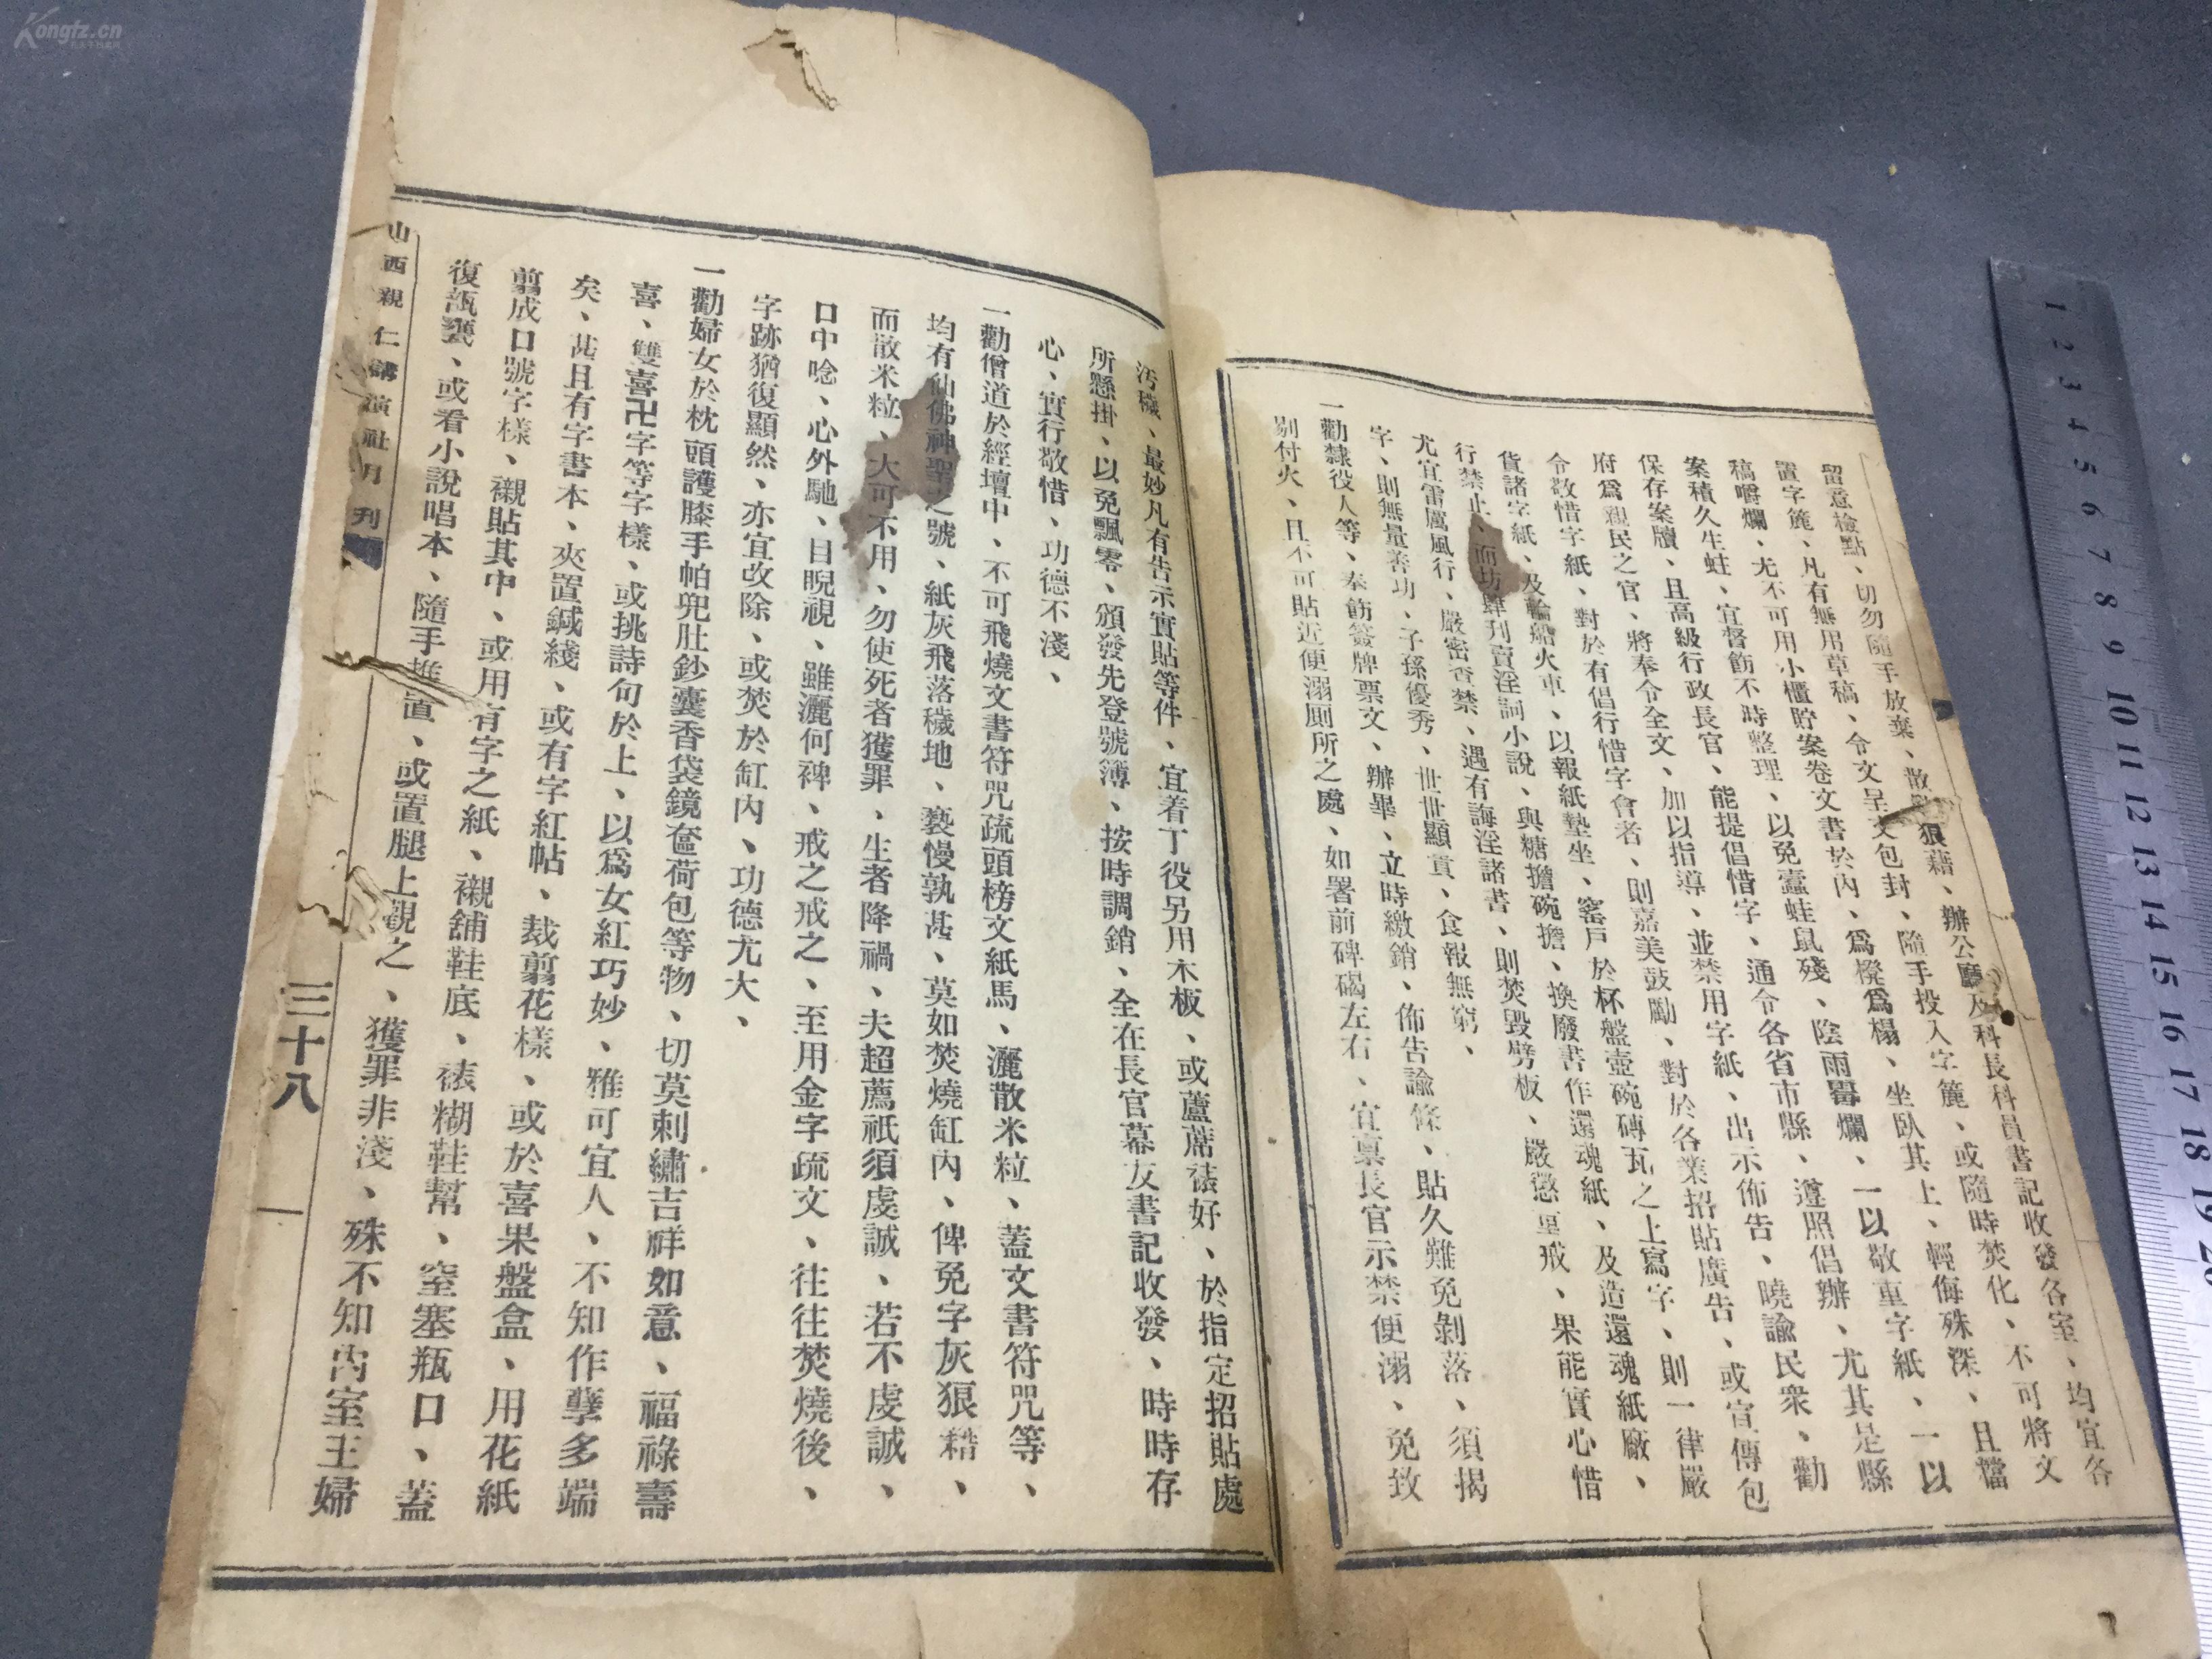 留意檢點、切勿隨手放棄、散　狼藉、辦公廳及科長科員書記收發各室、均宜各
置字簏、凡有無用草稿、令文呈文包封、隨手投入字簏、或隨時焚化、不可將文
稿嚼爛、尤不可用小櫃貯案卷文書於內、爲櫈爲榻、坐臥其上、輕侮殊深、且檔
案積久生蛀、宜督飭不時整理、以免蠹蛀鼠殘、陰雨霉爛、一以敬重字紙、一以
保存案牘、且高級行政長官、能提倡惜字、通令各省市縣、遵照倡辦、尤其是縣
府爲親民之官、將奉令全文、加以指導、並禁用字紙、出示佈告、曉諭民衆、勸
令敬惜字紙、對於有倡行惜字會者、則嘉美鼓勵、對於各業招貼廣告、或宣傳包
貨諸字紙、及輪船火車、以報紙墊坐、窰戶於杯盤壺碗磚瓦之上寫字、則一律嚴
行禁止、而坊肆刊賣淫詞小說、與糖擔碗擔、換廢書作還魂紙、及造還魂紙廠、
尤宜雷厲風行、嚴密查禁、遇有誨淫諸書、則焚毀劈板、嚴懲重戒、果能實心惜
字、則無量善功、子孫優秀、世世顯貴、食報無窮、
一勸隸役人等、奉飭簽牌票文、辦畢、立時繳銷、佈告諭條、貼久難免剝落、須揭
剔付火、且不可貼近便溺厠所之處、如署前碑碣左右、宜稟長官示禁便溺、免致
汚穢、最妙凡有告示實貼等件、宜着丁役另用木板、或蘆蓆裱好、於指定招貼處
所懸掛、以免飄零、頒發先登號簿、按時調銷、全在長官幕友書記收發、時時存
心、實行敬惜、功德不淺、
一勸僧道於經壇中、不可飛燒文書符咒疏頭榜文紙馬、灑散米粒、蓋文書符咒等、
均有仙佛神聖之號、紙灰飛落穢地、褻慢孰甚、莫如焚燒缸內、俾免字灰狼藉、
而散米粒、大可不用、勿使死者獲罪、生者降禍、夫超薦祇須虔誠、若不虔誠、
口中唸、心外馳、目睨視、雖灑何裨、戒之戒之、至用金字疏文、往往焚燒後、
字跡猶復顯然、亦宜改除、或焚於缸內、功德尤大、
一勸婦女於枕頭護膝手帕兜肚鈔囊香袋鏡奩荷包等物、切莫刺繡吉祥如意、福祿壽
喜、雙喜卍字等字樣、或挑詩句於上、以爲女紅巧妙、雅可宜人、不知作孽多端
矣、甚且有字書本、夾置鍼綫、或有字紅帖、裁翦花樣、或於喜果盤盒、用花紙
翦成口號字樣、襯貼其中、或用有字之紙、襯舖鞋底、裱糊鞋幫、窒塞瓶口、蓋
復瓿甕、或看小說唱本、隨手堆置、或置腿上觀之、獲罪非淺、殊不知內室主婦
山西親仁講演社月刊
三十八
Kongfz.cn
1 2 3 4 5 6 7 8 9 10 11 12 13 14 15 16 17 18 19 20